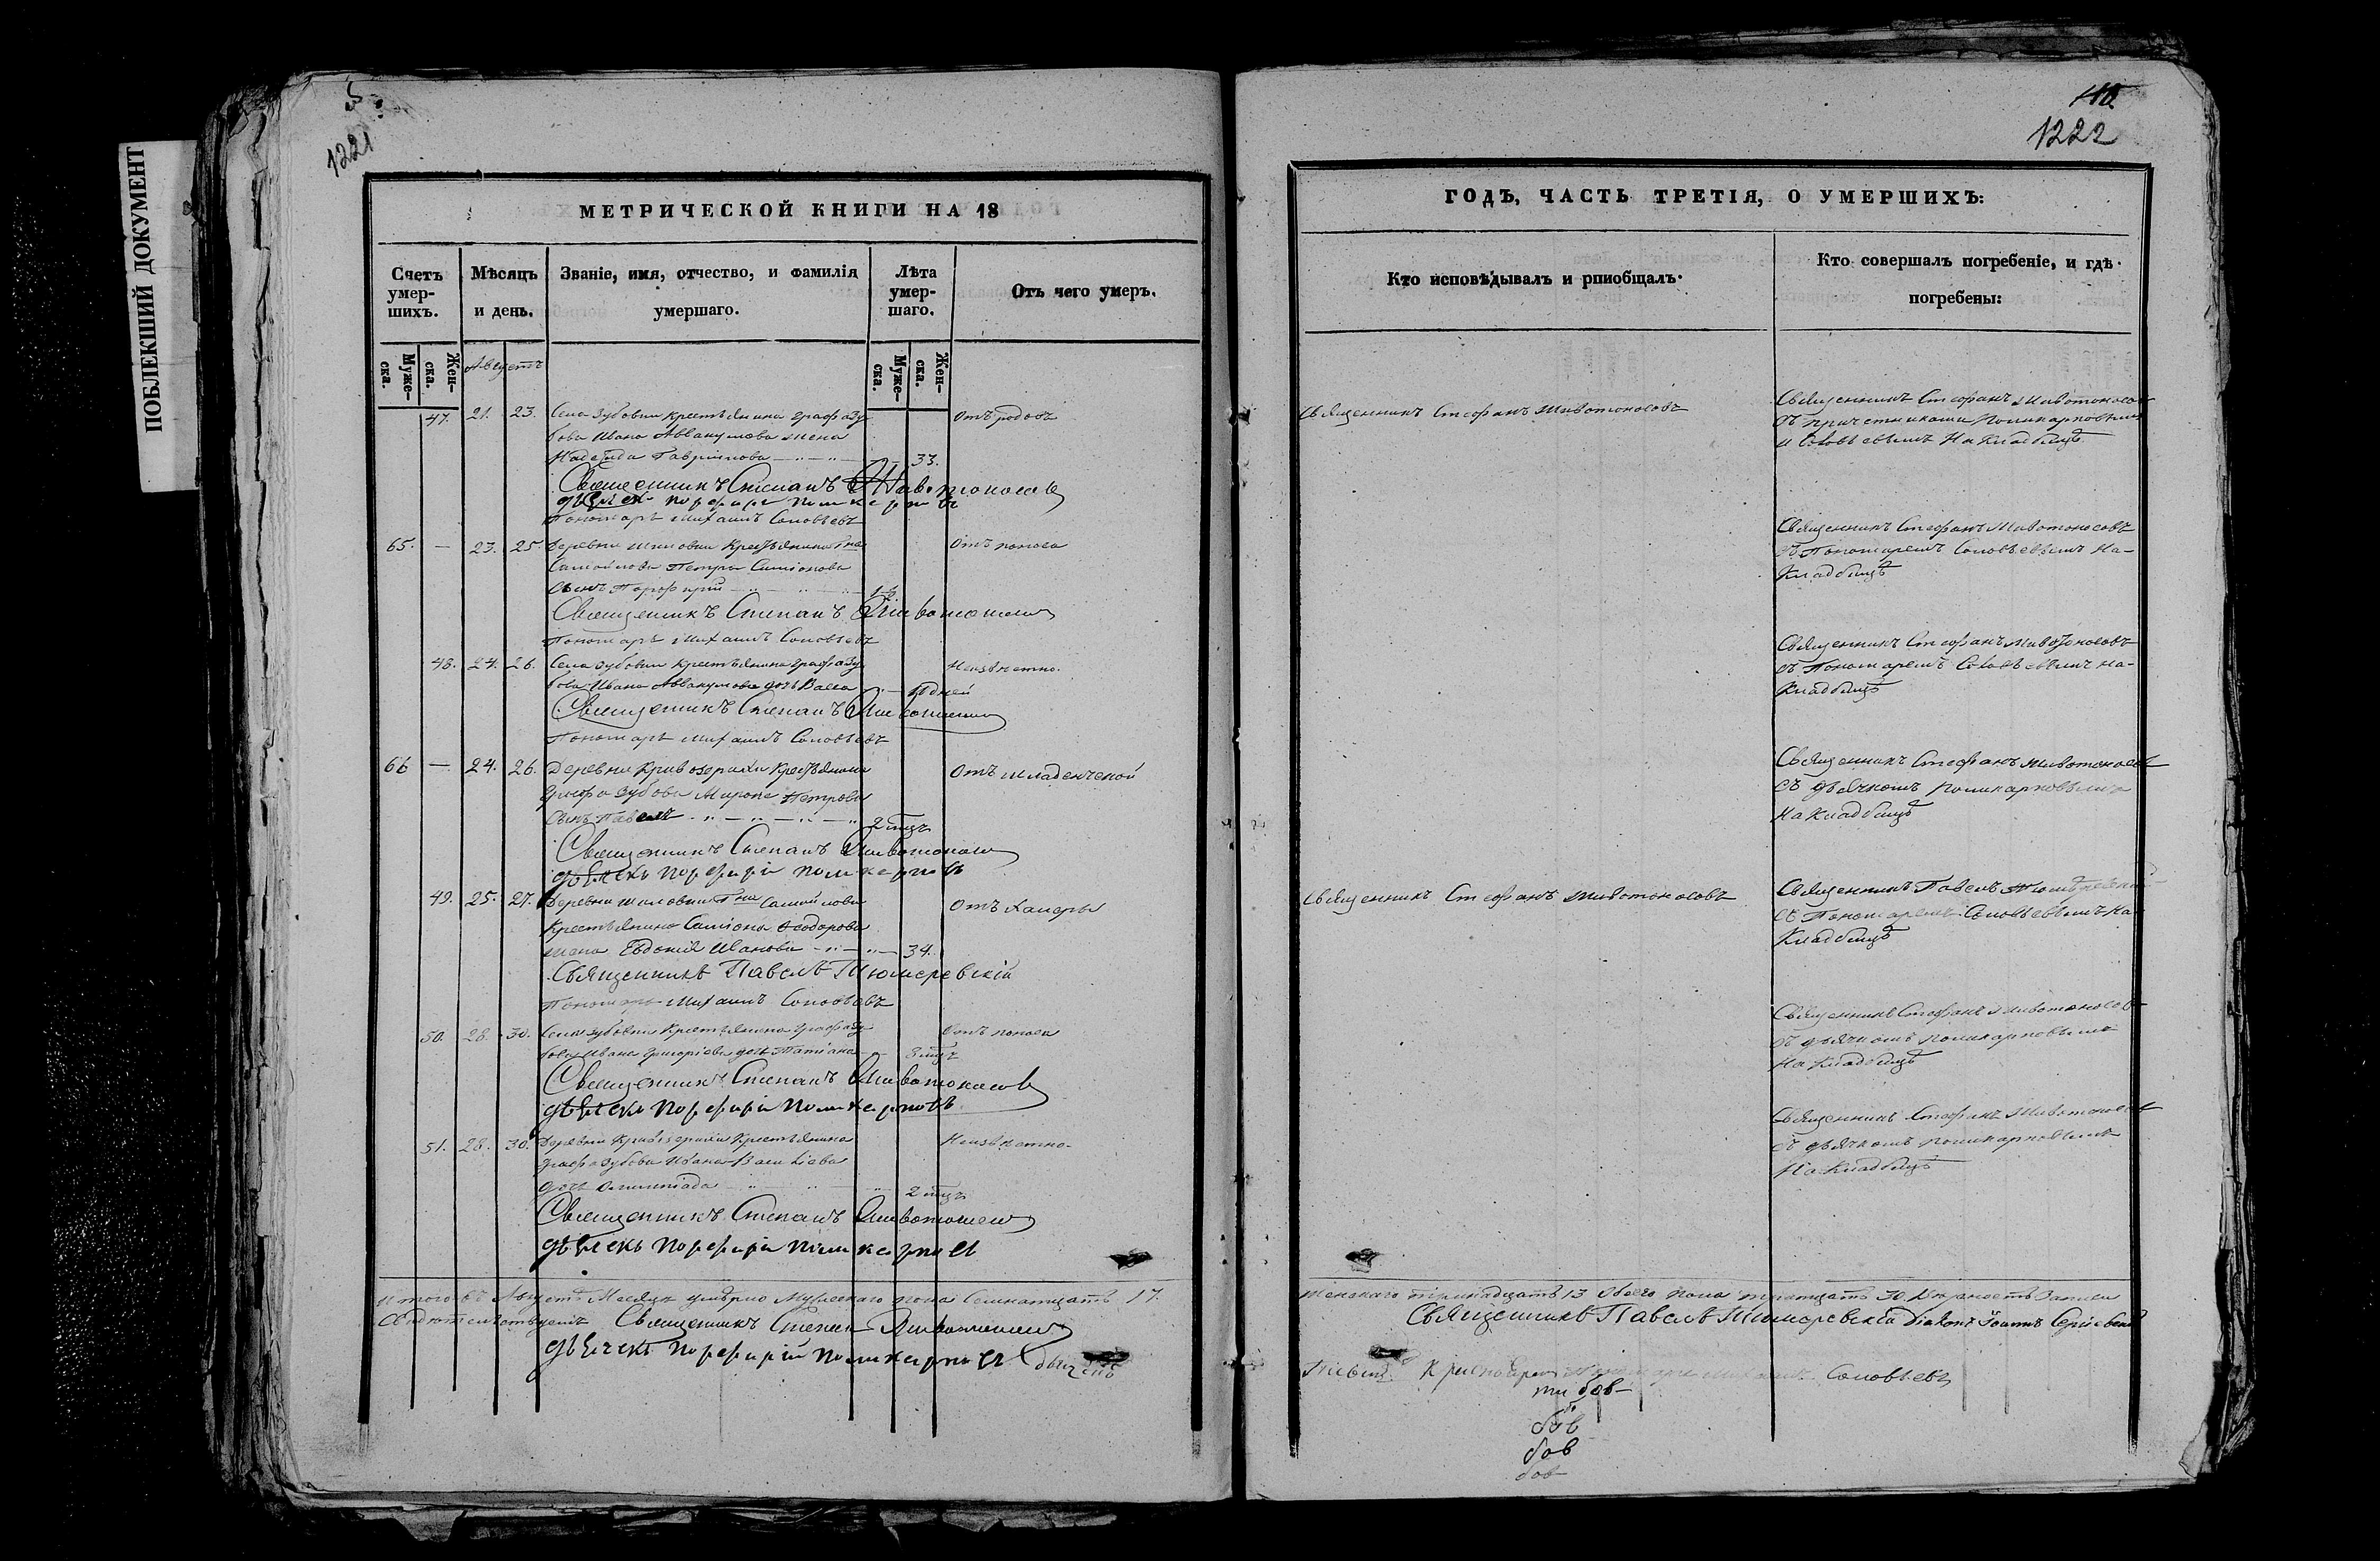 ПОБЛЕКШИЙ ДОКУМЕНТ
5
1221
МЕТРИЧЕСКОЙ КНИГИ НА 18
Счетъ умер-шихъ.
Муже-ска.
Жен-ска.
Мѣсяцъ и день.
Званіе, имя, отчество, и фамилія умершаго.
Лѣта умер-шаго.
Муже-ска.
Жен-ска.
Отъ чего умеръ.
Августъ
47. 21. 23. Села Зубовки крестьянина графа Зу
бова Ивана Аввакумова жена
Надежда Гаврилова 33.
Отъ родовъ
Священникъ Стефанъ Животоносовъ
дьячекъ Порфирій Поликарповъ
Пономарь Михаилъ Соловьевъ
65. — 23. 25. Деревни Шиловки Крестьянина Гна
Самойлова Петра Симіонова
сынъ Порфирій
Отъ поноса
Священникъ Стефанъ Животоносовъ
Пономарь Михаилъ Соловьевъ
48. 24. 26. Села Зубовки крестьянина графа Зу
бова Ивана Аввакумова дочь Васса дней
Неизвѣстно.
Священникъ Стефанъ Животоносовъ
Пономарь Михаилъ Соловьевъ
66 — 24. 26. Деревни Кривозерихи Крестьянина
графа Зубова Мирона Петрова
сынъ Павелъ 2 мцъ
Отъ младенческой
Священникъ Стефанъ Животоносовъ
дьячекъ Порфирій Поликарповъ
49. 25. 27. Деревни Шиловки Гна Самойлова
Крестьянина Симіона Ѳеодорова
жена Евдокія Иванова 34.
Отъ холеры
Священникъ Павелъ Тюмеревскій
Пономарь Михаилъ Соловьевъ
50. 28. 30. Села Зубовки Крестьянина графа Зу
бова Ивана Григоріева дочь Татіана 3 мцъ
Отъ поноса
Священникъ Стефанъ Животоносовъ
дьячекъ Порфирій Поликарповъ
51. 28. 30. Деревни Кривозерихи Крестьянина
графа Зубова Ивана Василіева
дочь Олимпіада 2 мцъ
Неизвѣстно.
Священникъ Стефанъ Животоносовъ
дьячекъ Порфирій Поликарповъ
Итого въ Августѣ Месяцѣ умерло Мужескаго пола Семнатцать 17.
Свидѣтельствуемъ Священникъ Стефанъ Животоносовъ
дьячекъ Порфирій Поликарповъ
1222
ГОДЪ, ЧАСТЬ ТРЕТІЯ, О УМЕРШИХЪ:
Кто исповѣдывалъ и рпиобщалъ.
Кто совершалъ погребеніе, и гдѣ погребены:
Священникъ Стефанъ Животоносовъ
Священникъ Стефанъ Животоносовъ
съ причетниками Поликарповымъ
и Соловьевымъ На Кладбищѣ
Священникъ Стефанъ Животоносовъ
съ Пономаремъ Соловьевымъ На-
Кладбищѣ
Священникъ Стефанъ Животоносовъ
съ Пономаремъ Соловьевымъ на-
Кладбищѣ
Священникъ Стефанъ Животоносовъ
съ дьячкомъ Поликарповымъ
На Кладбищѣ
Священникъ Стефанъ Животоносовъ
Священникъ Павелъ Тюмеревскій
съ Пономаремъ Соловьевымъ На
Кладбищѣ
Священникъ Стефанъ Животоносовъ
съ дьячкомъ Поликарповымъ
На Кладбищѣ
Священникъ Стефанъ Животоносовъ
съ дьячкомъ Поликарповымъ
На Кладбищѣ
женскаго тринадцать 13 обоего пола тратцать 30.
Священникъ Павелъ Тюмеревскій Діаконъ Іоаннъ
Соловьевъ
бов
бов
бов